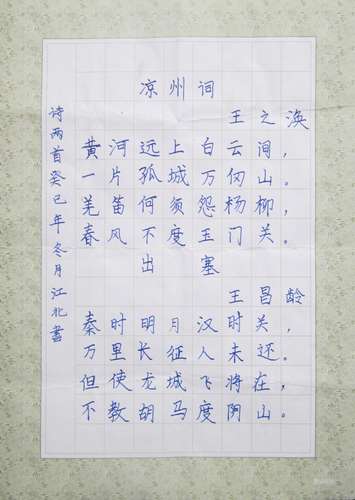 凉州词
王之涣
黄河远上白云涧，
一片孤城万仞山。
羌笛何须怨杨柳，
春风不度玉门关。
出塞
王昌龄
秦时明月汉时关，
万里长征人未还。
但使龙城飞将在，
不教胡马度阴山。
诗两首癸巳年冬月江北書